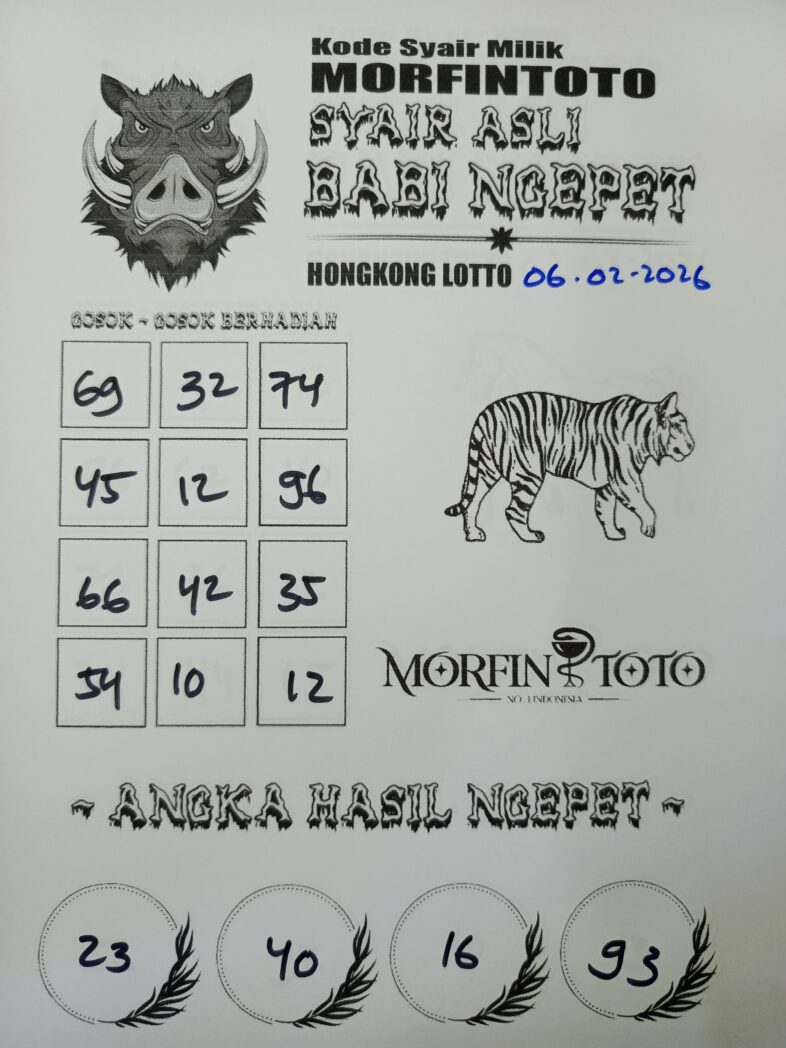 Kode Syair Milik
MORFINTOTO
SYAIR ASLI
BABI NGEPET
HONGKONG LOTTO 06.02-2026
GOSOK - GOSOK BERHADIAH
69 32 74
45 12 96
66 42 35
54 10 12
MORFIN TOTO
NO. 1 INDONESIA
~ ANGKA HASIL NGEPET ~
23 40 16 93